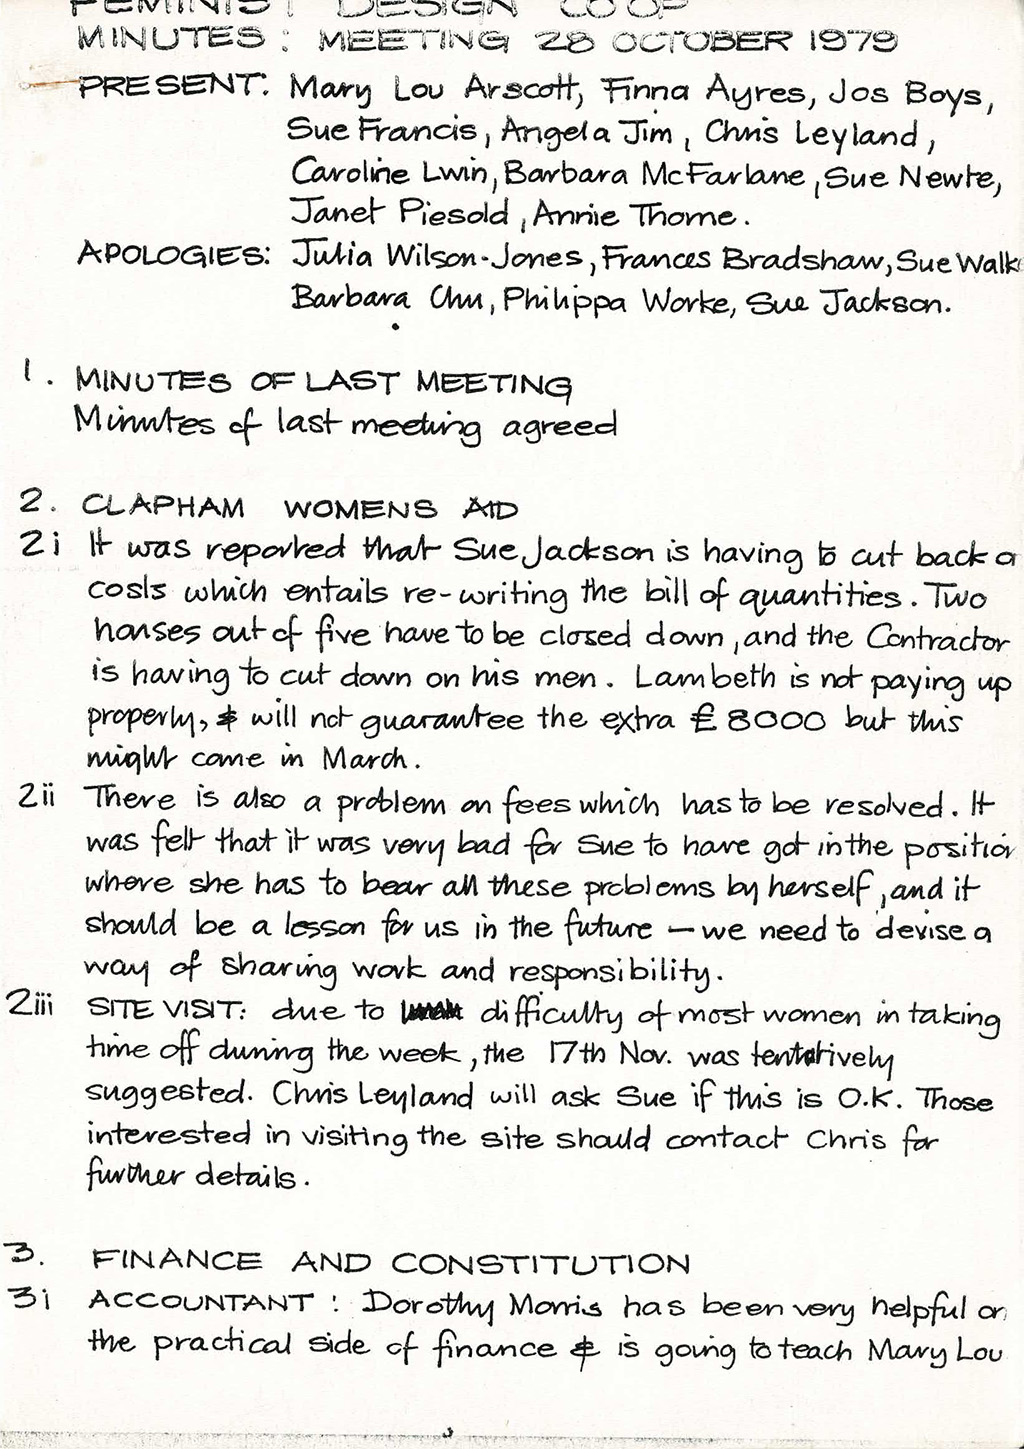 FEMINIST DESIGN CO OP
MINUTES: MEETING 28 OCTOBER 1979
PRESENT: Mary Lou Arscott, Finna Ayres, Jos Boys,
Sue Francis, Angela Jim, Chris Leyland,
Caroline Lwin, Barbara McFarlane, Sue Newte,
Janet Piesold, Annie Thorne.
APOLOGIES: Julia Wilson-Jones, Frances Bradshaw, Sue Walk
Barbara Chu, Philippa Worke, Sue Jackson.
1. MINUTES OF LAST MEETING
Minutes of last meeting agreed
2. CLAPHAM WOMENS AID
2i It was reported that Sue Jackson is having to cut back o
costs which entails re-writing the bill of quantities. Two
houses out of five have to be closed down, and the Contractor
is having to cut down on his men. Lambeth is not paying up
properly, & will not guarantee the extra £8000 but this
might come in March.
2ii There is also a problem on fees which has to be resolved. It
was felt that it was very bad for Sue to have got in the position
where she has to bear all these problems by herself, and it
should be a lesson for us in the future – we need to devise a
way of sharing work and responsibility.
2iii SITE VISIT: due to difficulty of most women in taking
time off during the week, the 17th Nov. was tentatively
suggested. Chris Leyland will ask Sue if this is O.K. Those
interested in visiting the site should contact Chris for
further details.
3. FINANCE AND CONSTITUTION
3i ACCOUNTANT: Dorothy Morris has been very helpful on
the practical side of finance & is going to teach Mary Lou